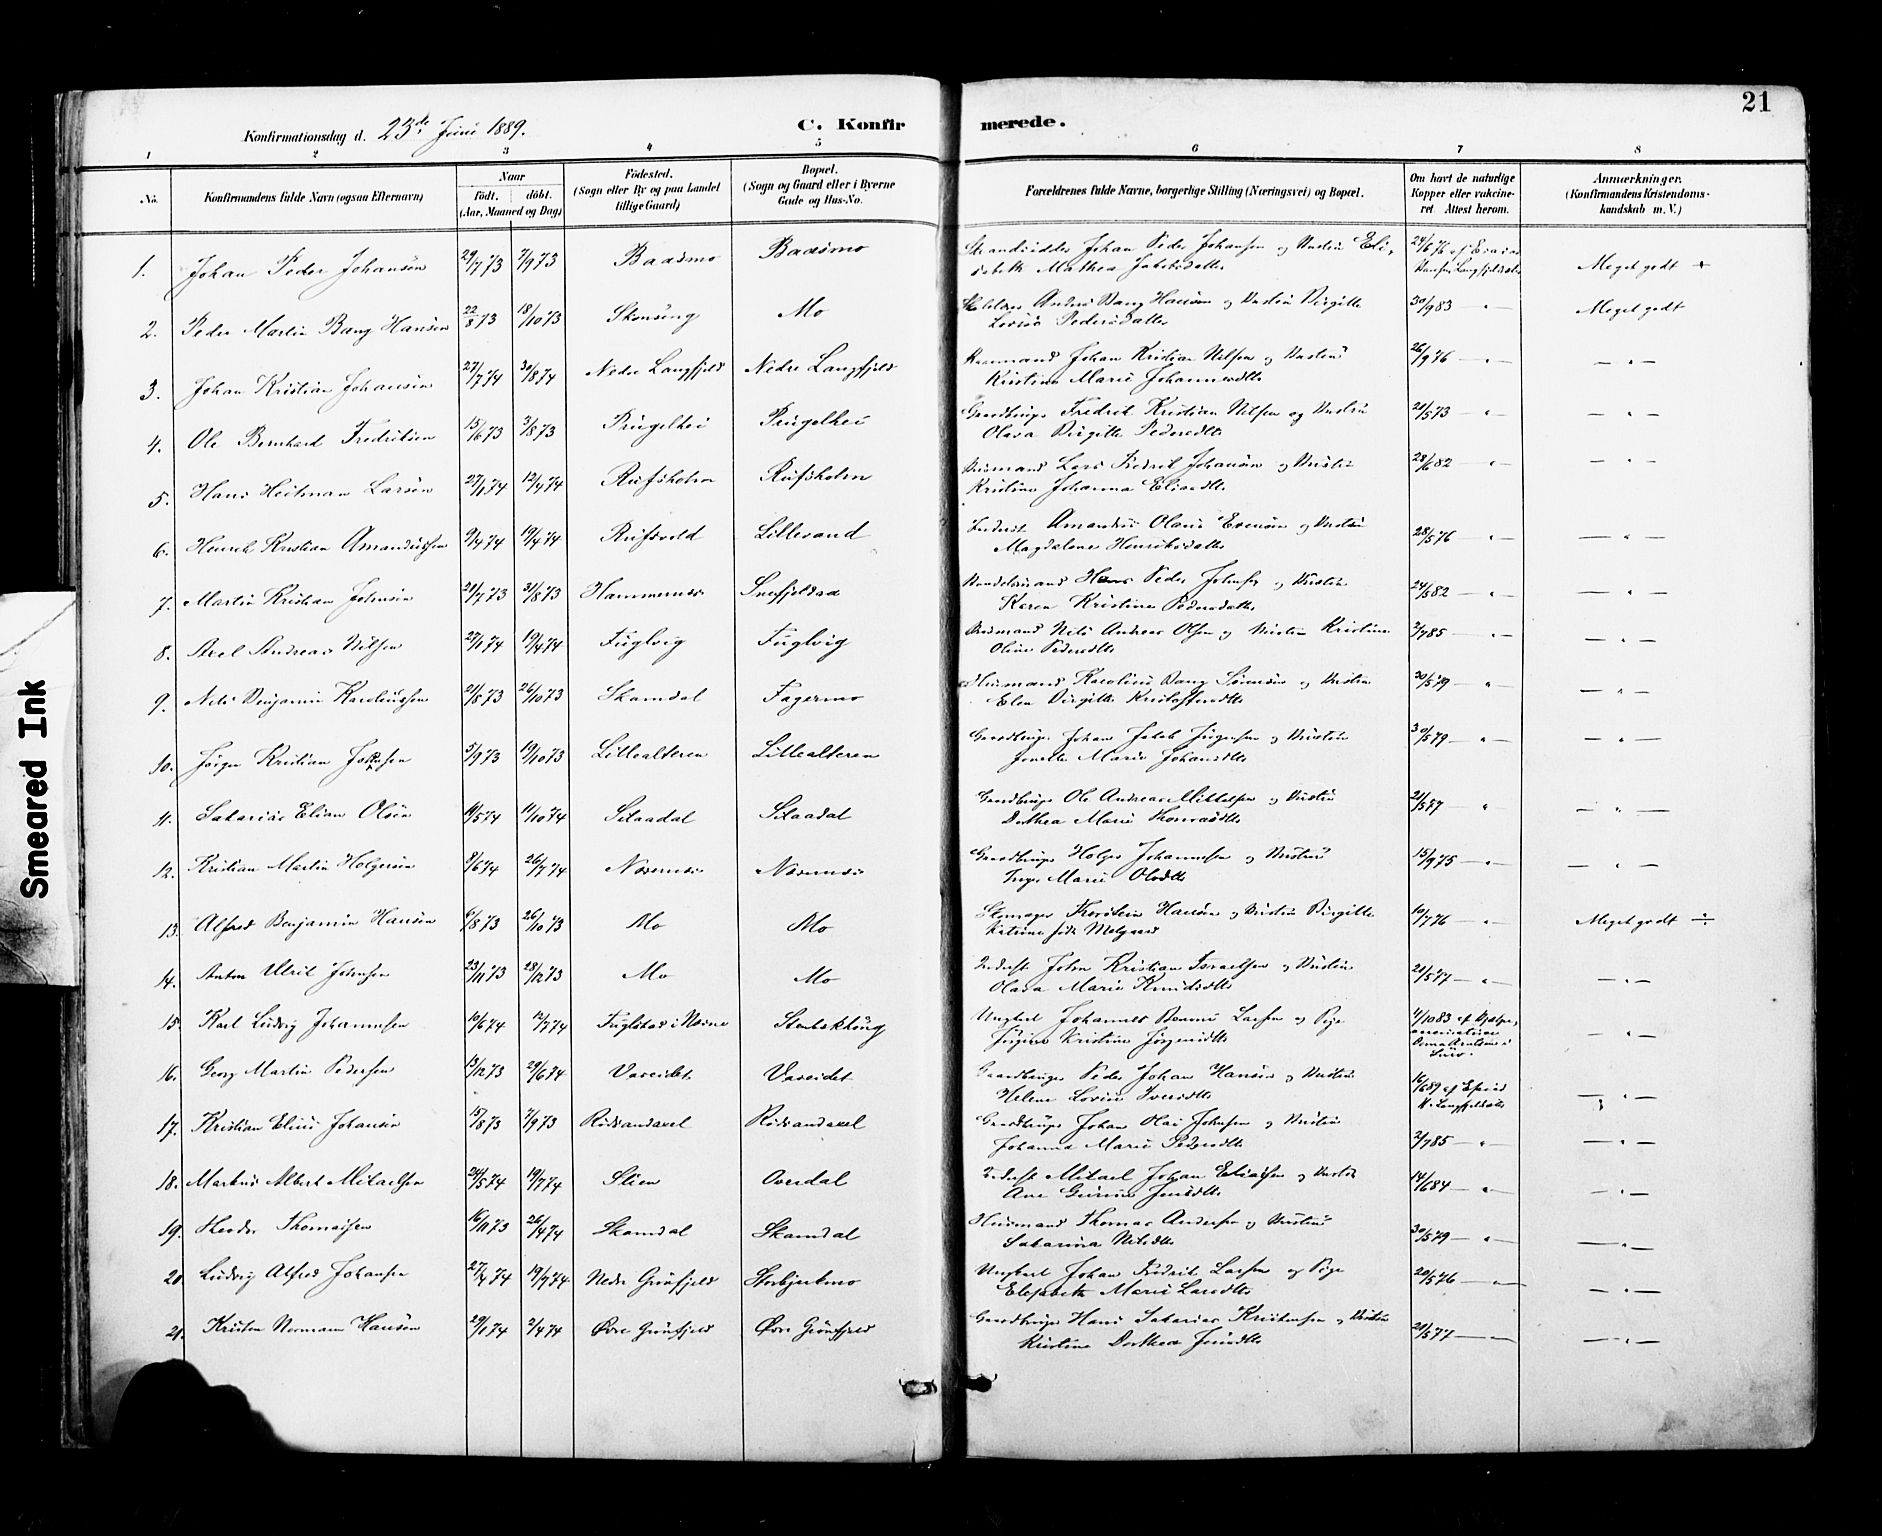 21
Konfirmationsdag d. 23de Juni 1889.
C. Konfirmerede.
1 2 3 4 5 6 7 8
No.
Konfirmandens fulde Navn (ogsaa Efternavn)
Naar
födt. döbt.
(Aar, Maaned og Dag)
Födested.
(Sogn eller By og paa Landet
tillige Gaard)
Bopæl.
(Sogn og Gaard eller i Byerne
Gade og Hus-No.
Forældrenes fulde Navne, borgerlige Stilling (Næringsvei) og Bopæl.
Om havt de naturlige
Kopper eller vakcine-
ret Attest herom.
Anmærkninger.
(Konfirmandens Kristendoms-
kundskab m. V.)
1. Johan Peder Johansen 29/7 73 7/9 73 Baasmo Baasmo Johan Peder Johansen og Hustru Eli-
sabeth Mathea Jakobsdatter 24/6 76 Meget godt +
2. Peder Martin Bang Hansen 22/8 73 18/10 73 Skonseng Mo Anders Bang Hansen og Hustru Birgitte
Lovise Pedersdatter 30/9 83 — " — Meget godt
3. Johan Kristian Johansen 27/7 74 30/8 74 Nedre Langfjeld Nedre Langfjeld Johan Kristian Nilsen og Hustru
Kristine Marie Johannesdtr 26/9 76 — " — — " —
4. Ole Bernhard Fredriksen 15/6 73 3/8 73 Prügelhei Prügelhei Gaardbruger Fredrik Kristian Nilsen og Hustru
Olava Birgitte Pedersdtr 20/5 73 — " — — " —
5. Hans Heitman Larsen 27/1 74 12/4 74 Rufsholm Rufsholm Husmand Lars Fredrik Johansen og Hustru
Kristine Johanna Eliasdtr 28/6 82 — " — — " —
6. Henrik Kristian Amandussen 9/4 74 19/4 74 Lillesand Inderst Amandus Olaus Evensen og Hustru
Magdalene Henriksdatter 28/5 76 — " — — " —
7. Martin Kristian Johnsen 21/7 73 31/8 73 Hammernæs Hans Peder Johnsen og Hustru
Karen Kristine Pedersdatter 24/6 82 — " — — " —
8. Axel Andreas Nilsen 27/1 74 19/4 74 Fuglvig Fuglvig Husmand Nils Andreas Olsen og Hustru Kristine
Oline Pedersdtr 2/7 85 — " — — " —
9. Nils Benjamin Karoliussen 21/8 73 26/10 73 Skamdal Fagermo Husmand Karolius Bang Sörensen og Hustru
Elen Birgitte Kristofersdtr 30/5 79 — " — — " —
10. Jörgen Kristian Johnsen 5/9 73 19/10 73 Lillealteren Lillealteren Gaardbruger Johan Jakob Jörgensen og Hustru
Jonette Marie Johansdtr 30/5 79 — " — — " —
11. Sakarias Elian Olsen 14/5 74 11/10 74 Silaadal Silaadal Gaardbruger Ole Andreas Mikkelsen og Hustru
Dorthea Marie Thomasdtr 21/5 77 — " — — " —
12. Kristian Martin Holgersen 8/6 74 26/7 74 Næsernæs Næsernæs Gaardbruger Holger Johannesen og Hustru
Inger Marie Olsdtr 15/9 75 — " — — " —
13. Alfred Benjamin Hansen 6/8 73 26/10 73 Mo Mo Skomager Thorstein Hansen og Hustru Birgitte
Katrine født Melgaard 10/7 76 — " — Meget godt ÷
14. Anton Ulrik Johnsen 23/11 73 28/12 73 Mo Mo Inderst John Kristian Israelsen og Hustru
Olava Marie Knudsdtr 21/5 77 — " — — " —
15. Karl Ludvig Johannesen 10/6 74 12/7 74 Fuglstad i Næsne Stenbækkeng Ungkarl Johannes Benoni Larsen og Pige
Jörgine Kristine Jörgensdtr 4/10 83 — " —
16. Georg Martin Pedersen 13/12 73 29/6 74 Vareidet Vareidet Gaardbruger Peder Johan Hansen og Hustru
Helene Lovise Iversdtr 16/6 89 — " —
17. Kristian Elius Johansen 15/8 73 7/9 73 Rödsandaxel Rödsandaxel Gaardbruger Johan Olai Johnsen og Hustru
Johanna Marie Pedersdtr 2/7 85 — " — — " —
18. Markus Albert Mikaelsen 24/5 74 19/7 74 Stien Overdal Inderst Mikael Johan Eliassen og Hustru
Ane Gurine Jensdtr 14/6 84 — " — — " —
19. Theodor Thomassen 16/11 73 26/4 74 Skamdal Skamdal Husmand Thomas Andersen og Hustru
Sakarina Nilsdtr 30/5 79 — " — — " —
20. Ludvig Alfred Johansen 27/4 74 19/7 74 Nedre Grönfjeld Storbjerkmo Ungkarl Johan Fredrik Larsen og Pige
Elisabeth Marie Larsdtr 20/5 76 — " — — " —
21. Kristen Normann Hansen 29/1 74 2/4 74 Övre Grönfjeld Övre Grönfjeld Gaardbruger Hans Sakarias Kristensen og Hustru
Kristine Dorthea Jensdtr 20/5 77 — " — — " —
Smeared Ink